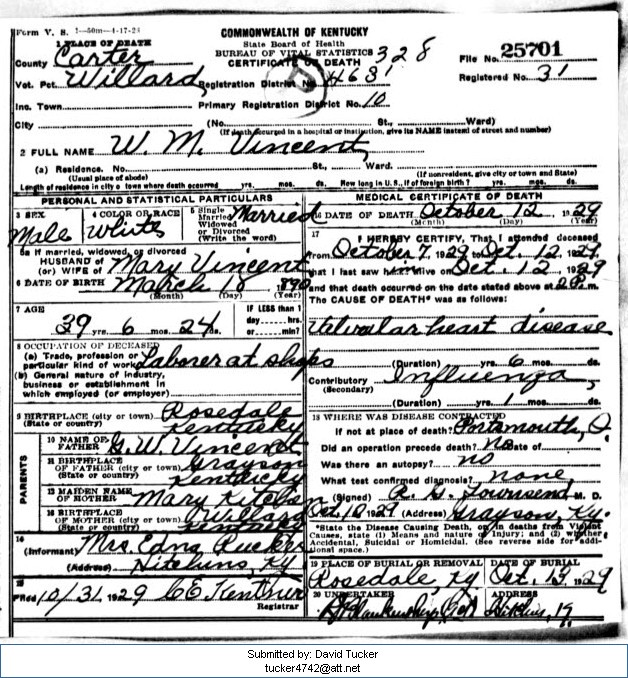 Form V. S. 1-50m-4-17-28
COMMONWEALTH OF KENTUCKY
State Board of Health
BUREAU OF VITAL STATISTICS
CERTIFICATE OF DEATH
328
File No. 25701
Registered No. 31
1 PLACE OF DEATH
County Carter
Vot. Pct. Willard
Registration District No. 4631
Inc. Town
Primary Registration District No. 10
City (No. St., Ward)
(If death occurred in a hospital or institution, give its NAME instead of street and number)
2 FULL NAME W. M. Vincent
(a) Residence. No. St., Ward.
(Usual place of abode) (If nonresident, give city or town and State)
Length of residence in city or town where death occurred yrs. mos. ds. How long in U. S., if of foreign birth? yrs. mos. ds.
PERSONAL AND STATISTICAL PARTICULARS
3 SEX Male
4 COLOR OR RACE White
5 Single Married Widowed or Divorced (Write the word) Married
5a If married, widowed, or divorced
HUSBAND of (or) WIFE of Mary Vincent
6 DATE OF BIRTH March 18 1890
(Month) (Day) (Year)
7 AGE
39 yrs. 6 mos. 24 ds.
IF LESS than 1 day hrs. or min.?
8 OCCUPATION OF DECEASED
(a) Trade, profession or particular kind of work Laborer at shops
(b) General nature of industry, business or establishment in which employed (or employer)
9 BIRTHPLACE (city or town) Rosedale
(State or country) Kentucky
PARENTS
10 NAME OF FATHER G. W. Vincent
11 BIRTHPLACE OF FATHER (city or town) Grayson
(State or country) Kentucky
12 MAIDEN NAME OF MOTHER Mary Kitchen
13 BIRTHPLACE OF MOTHER (city or town) Willard
(State or country) Kentucky
14
(Informant) Mrs. Edna Rucker
(Address) Hitchins, Ky
15
Filed 10/31 1929 C E Kentner
Registrar
MEDICAL CERTIFICATE OF DEATH
16 DATE OF DEATH October 12 1929
(Month) (Day)
17
I HEREBY CERTIFY, That I attended deceased
from October 7, 1929 to Oct. 12 1929
that I last saw him alive on Oct. 12 1929
and that death occurred on the date stated above at m.
The CAUSE OF DEATH* was as follows:
Valvular heart disease
(Duration) yrs. 6 mos. ds.
Contributory Influenza,
(Secondary)
(Duration) yrs. 1 mos. ds.
18 WHERE WAS DISEASE CONTRACTED
If not at place of death? Portsmouth, O.
Did an operation precede death? No Date of
Was there an autopsy? no
What test confirmed diagnosis? none
(Signed) R. G. Townsend M. D.
1929 (Address) Grayson, Ky.
*State the Disease Causing Death, or in deaths from Violent Causes, state (1) Means and nature of Injury; and (2) whether Accidental, Suicidal or Homicidal. (See reverse side for additional space.)
19 PLACE OF BURIAL OR REMOVAL
Rosedale, Ky
DATE OF BURIAL
Oct. 13 1929
20 UNDERTAKER
ADDRESS
Submitted by: David Tucker
tucker4742@att.net